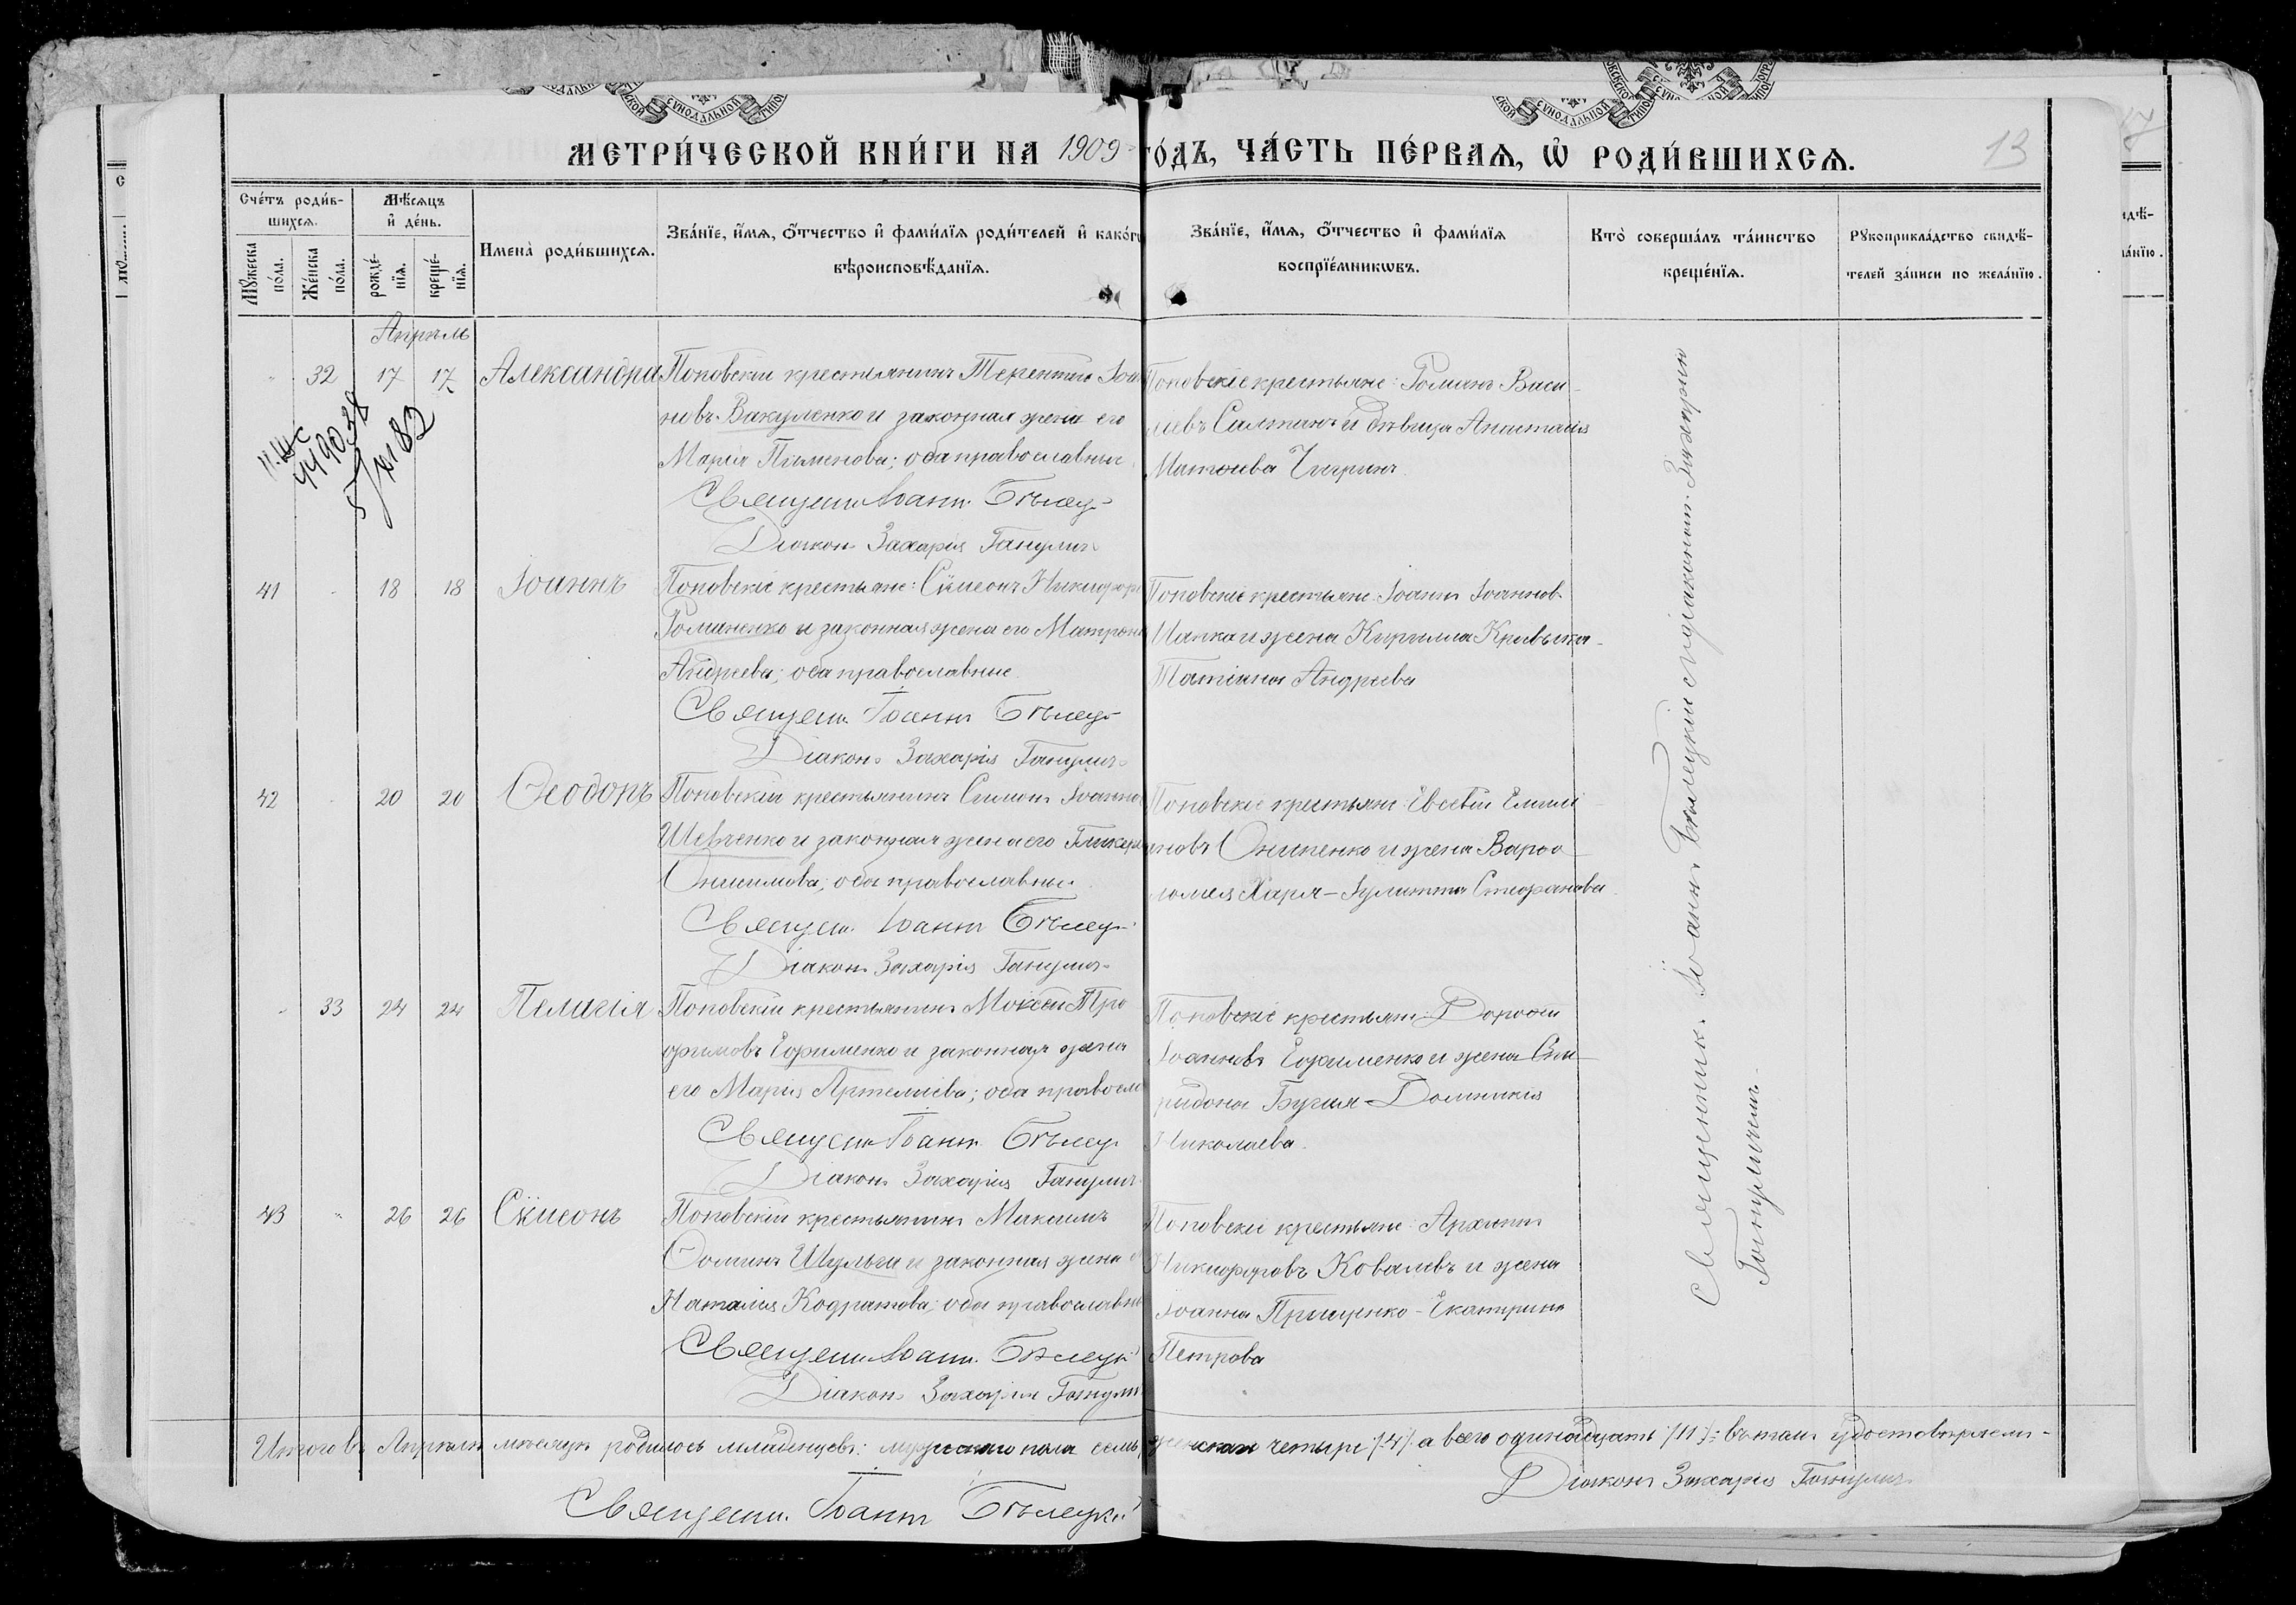 МЕТРИ́ЧЕСКОЙ КНИ́ГИ НА 1909 ГО́ДЪ, ЧА́СТЬ ПЕ́РВАѦ, Ѡ҆ РОДИ́ВШИХСѦ.
13
Сче́тъ роди́в-
шихсѧ.
Мꙋ́жеска по́ла.
Же́нска по́ла.
Мѣ́сѧцъ
и҆ де́нь.
рожде́-
нїѧ.
креще́-
нїѧ.
Имена̀ роди́вшихсѧ.
Зва́нїе, и҆́мѧ, ѻ҆́тчество и҆ фами́лїѧ роди́телей и҆ како́гѡ
вѣроисповѣ́данїѧ.
Зва́нїе, и҆́мѧ, ѻ҆́тчество и҆ фами́лїѧ
воспрїе́мникѡвъ.
Кто̀ соверша́лъ та́инство
креще́нїѧ.
Рꙋкоприкла́дство свидѣ́-
телей за́писи по жела́нїю.
Апрѣль
32 17 17 Александра
Поповскій крестьянинъ Терентій Іоан
новъ Вакуленко и законная жена его
Марія Пименова; оба православные
Священ. Іоаннъ Бѣлец
Діаконъ Захарія Ганулич
Поповскіе крестьяне: Романъ Васи-
ліевъ Салтанъ и дѣвица Анастасія
Матѳіева Чигринъ.
41 18 18 Іоаннъ
Поповскіе крестьяне: Сѵмеонъ Никифор
Романенко и законная жена его Матрона
Андреева; оба православные
Священ. Іоаннъ Бѣлец
Діаконъ Захарія Ганулич
Поповскіе крестьяне: Іоаннъ Іоаннов
Цапка и жена Кирилла Кривъ
Татіана Андреева
42 20 20 Ѳеодотъ
Поповскій крестьянинъ Симонъ Іоанно
Шевченко и законная жена его Гликерія
Онисимова; оба православные
Священ. Іоаннъ Бѣлец
Діаконъ Захарія Ганулич
Поповскіе крестьяне: Евсевій Емилі
ановъ Онипенко и жена Варѳо-
ломея Харя - Іулитта Стефанова.
33 24 24 Пелагія
Поповскій крестьянинъ Мокей Тро
фимовъ Ефименко и законная жена
его Марія Артеміева; оба правосла
Священ. Іоаннъ Бѣлец
Діаконъ Захарія Ганулич
Поповскіе крестьяне: Дороѳей
Іоанновъ Ефименко и жена Спи-
ридона Бугая - Домникія
Николаева.
43 26 26 Сѵмеонъ
Поповскій крестьянинъ Максимъ
Ѳоминъ Шульга и законная жена е
Наталія Кодратова; оба православны
Священ. Іоаннъ Бѣлецк
Діаконъ Захарія Ганулич
Поповскіе крестьяне: Архиппъ
Никифоровъ Ковалевъ и жена
Іоанна Прищенко - Екатерина
Петрова
Священник. Іоанн. Бѣлецкій съ діаконом. Захарію
Гануличемъ.
Итого въ Апрѣлѣ мѣсяцѣ родилось младенцевъ: мужскаго пола семь, женскаго четыре /4/, а всего одинадцать /11/: въ том удостовѣряем:
Діаконъ Захарія Ганулич
Священ. Іоаннъ Бѣлецкій